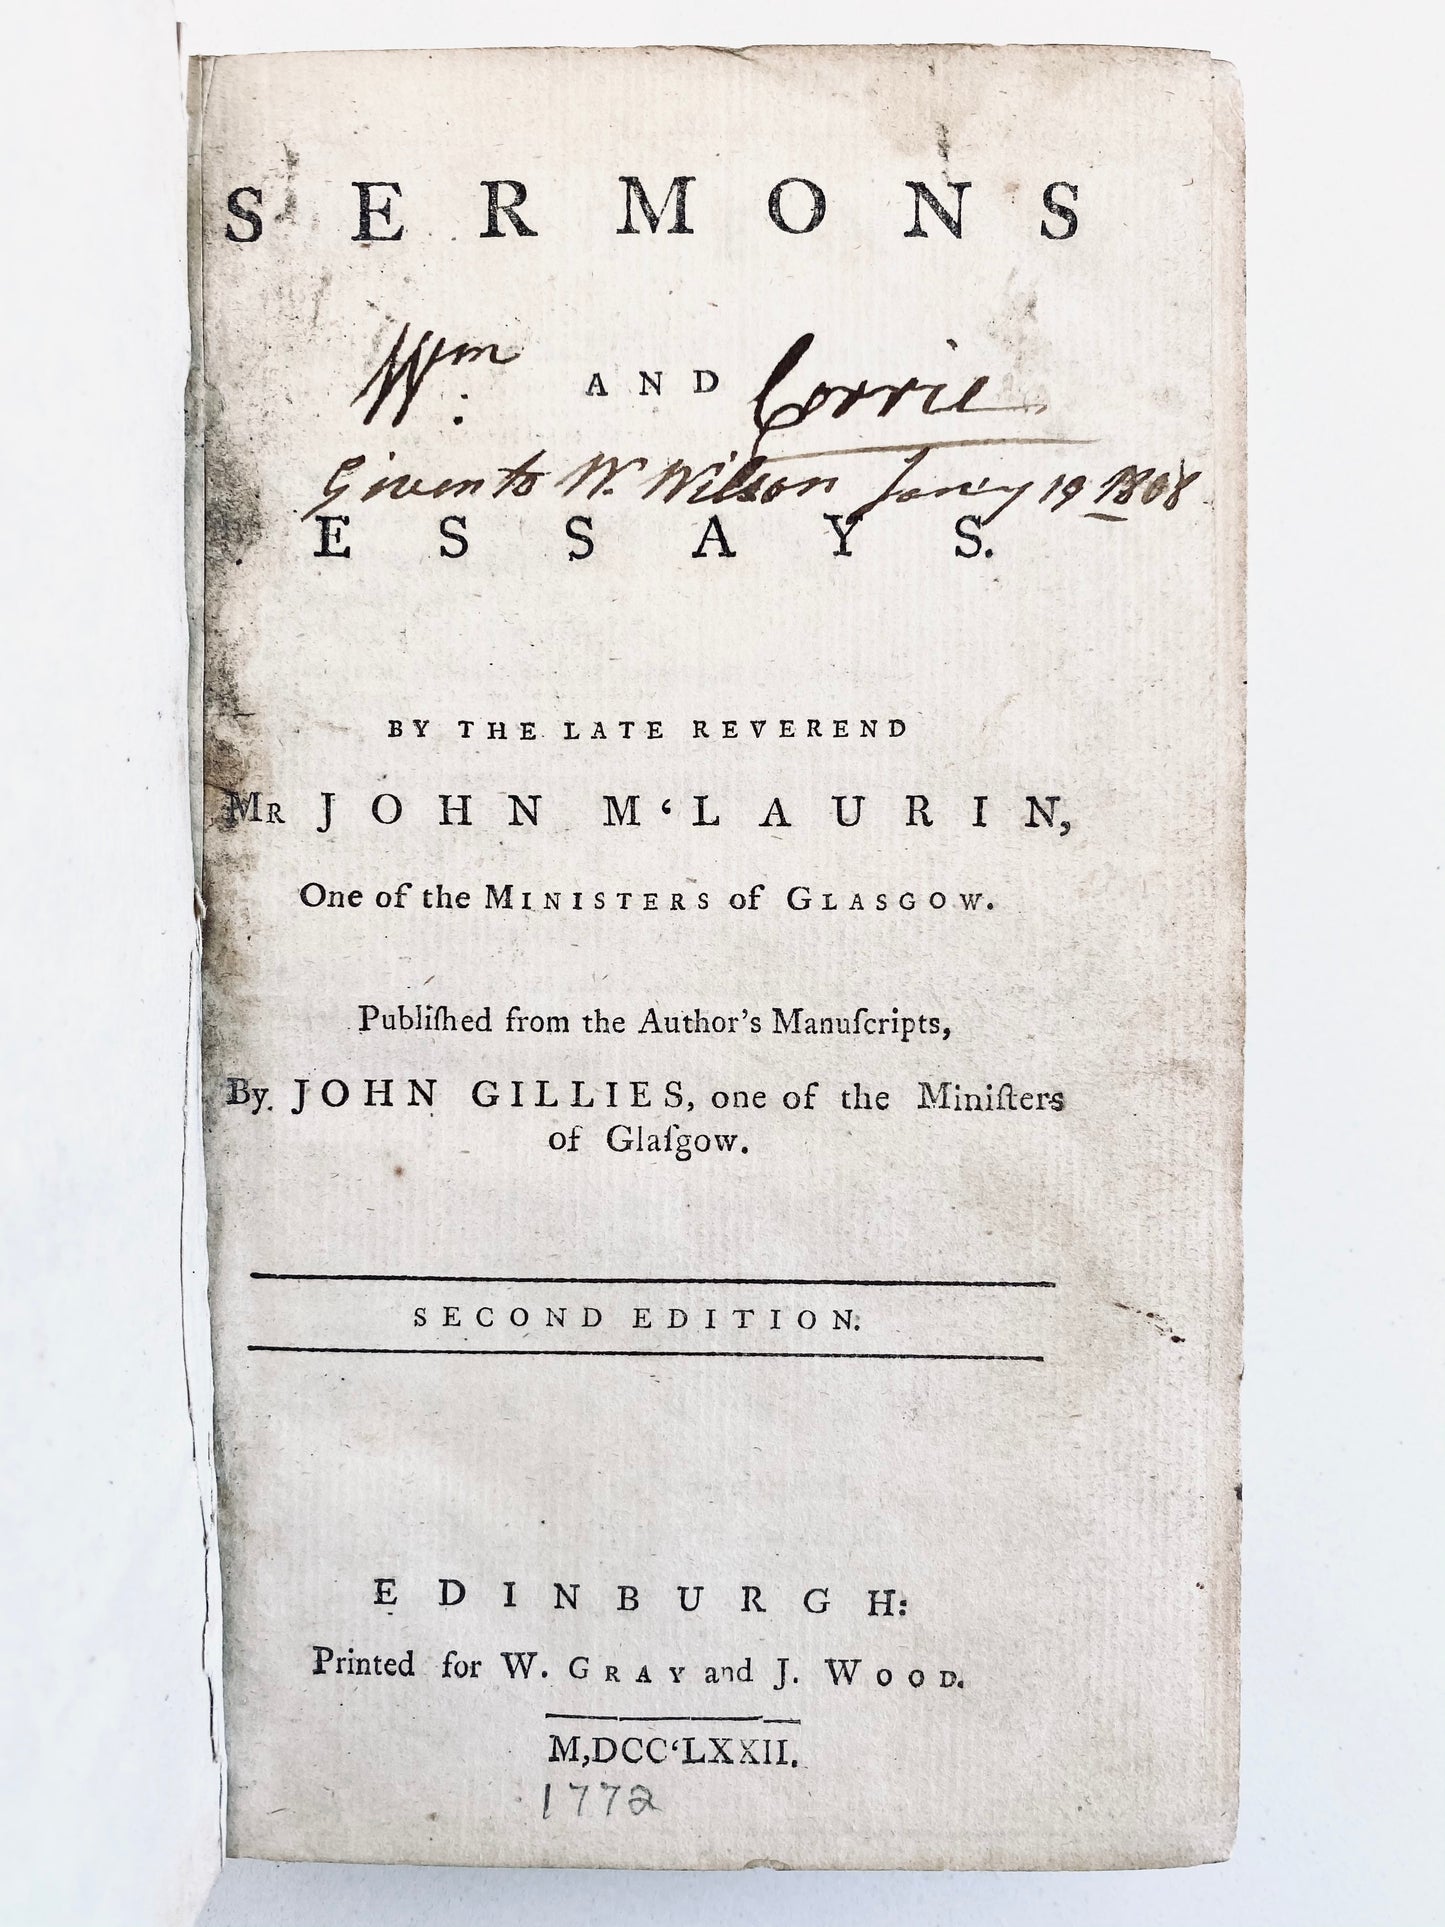 SERMONS
Wm: AND Corrie
Given to W. Wilson Jan'y 19 1808
ESSAYS.
BY THE LATE REVEREND
MR JOHN M‘LAURIN,
One of the MINISTERS of GLASGOW.
Publiſhed from the Author's Manuſcripts,
By JOHN GILLIES, one of the Miniſters
of Glaſgow.
SECOND EDITION.
EDINBURGH:
Printed for W. GRAY and J. WOOD.
M,DCC‘LXXII.
1772